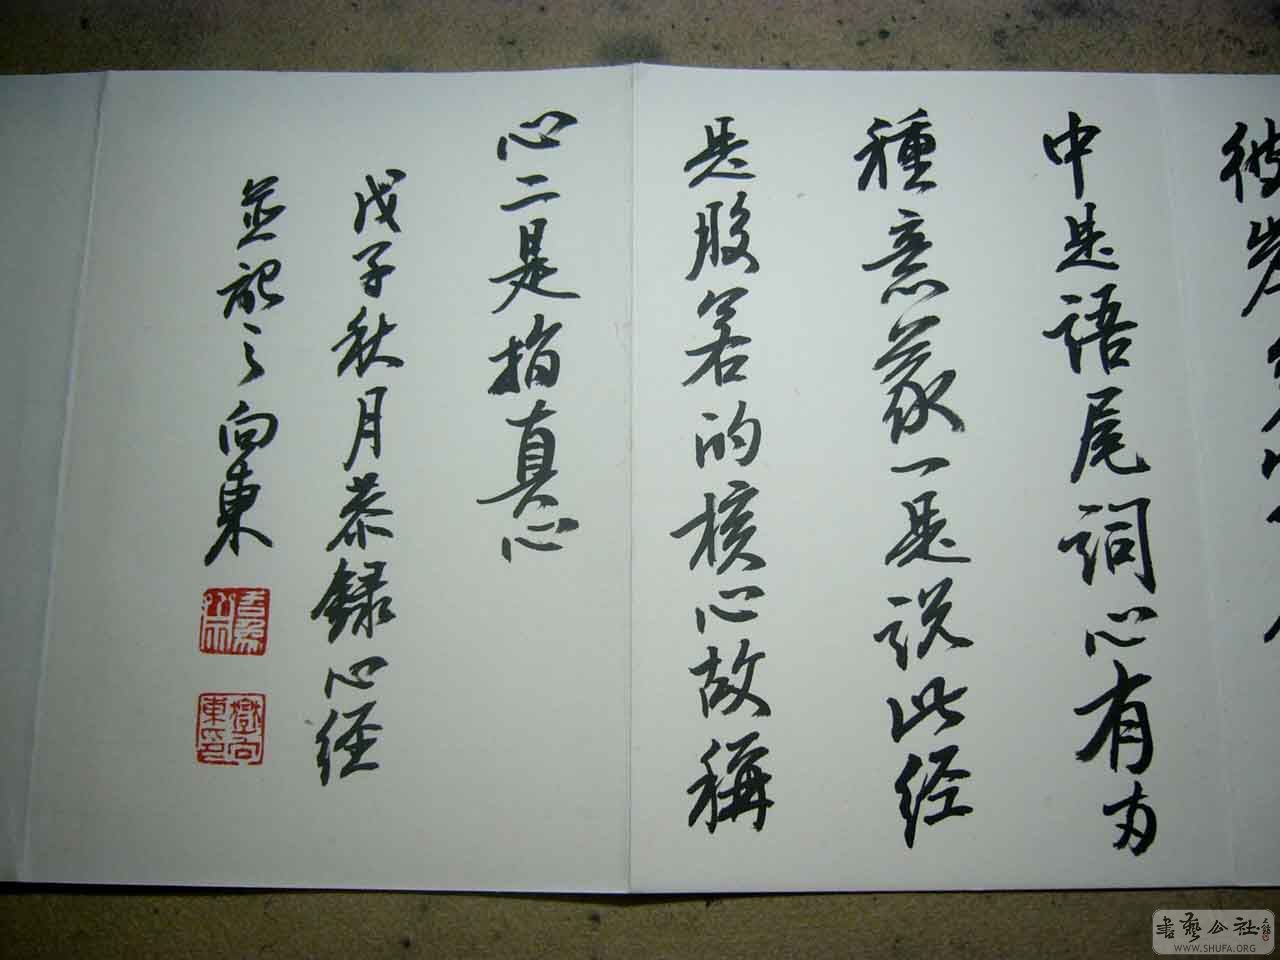 彼岸
中是語尾词心有两
種意義一是说此经
是般若的核心故稱
心二是指真心
戊子秋月恭録心经
並記之向東
書藝公社
WWW.SHUFA.ORG